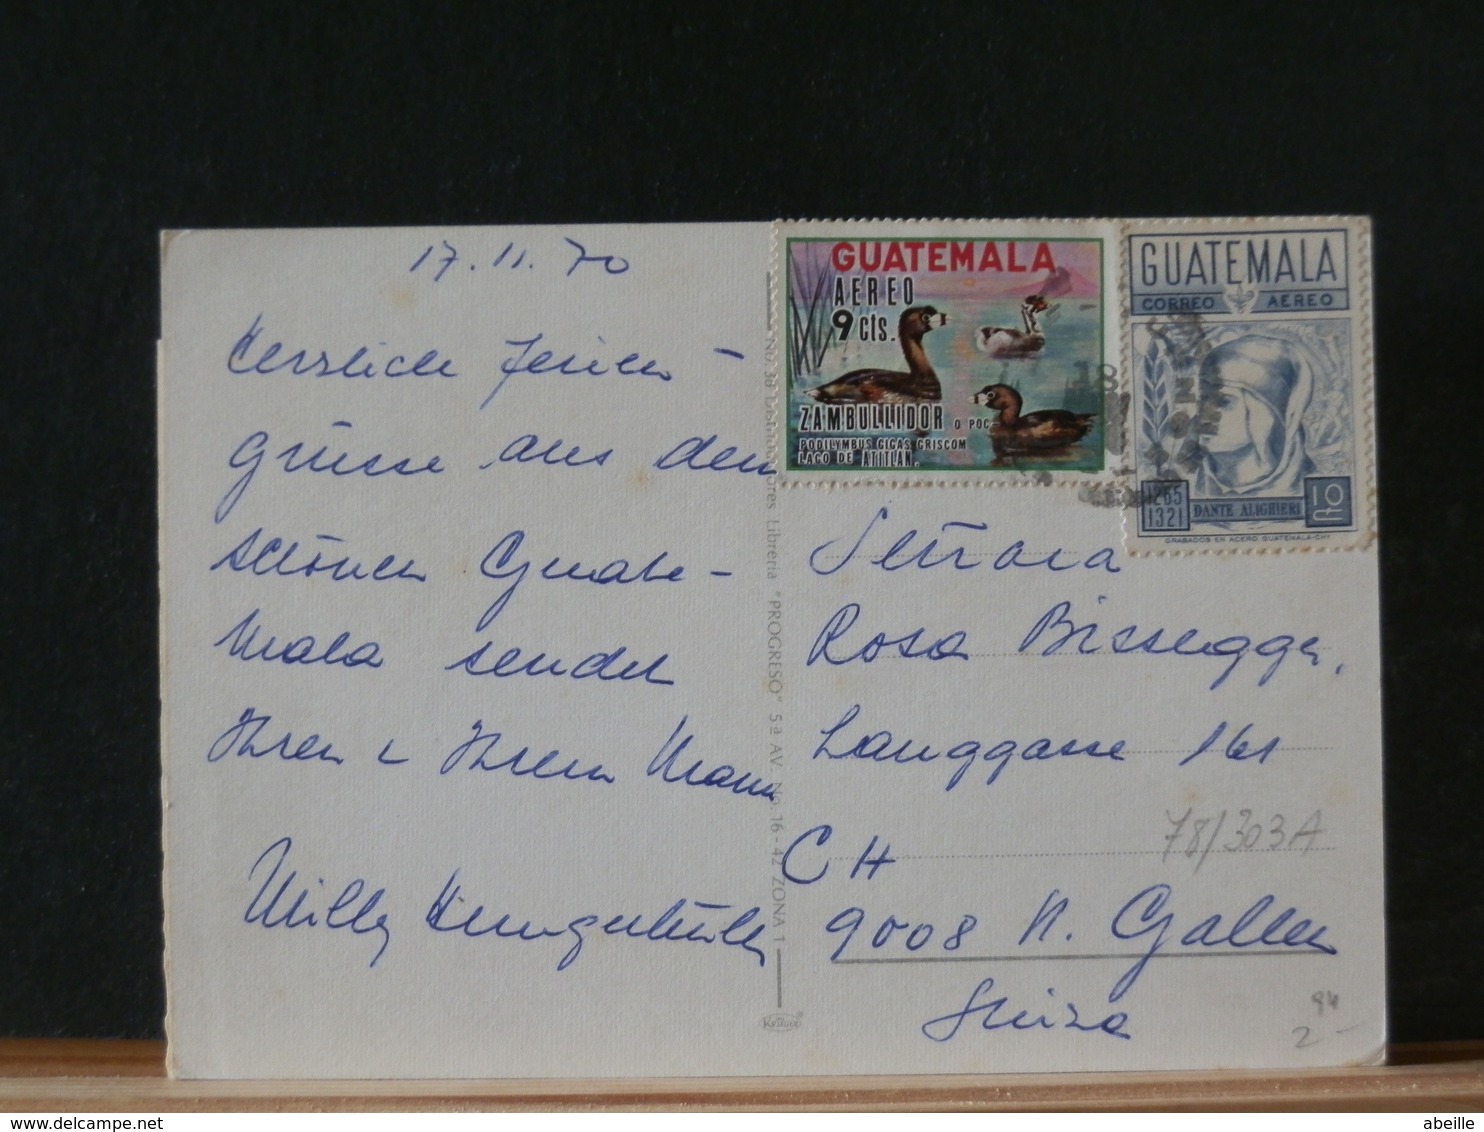 17.11.70
Herzliche Ferien-
grüsse aus dem
schönen Guate-
mala sendet
Ihnen & Ihrem Mann
Willy
GUATEMALA
AEREO
9 cts.
ZAMBULLIDOR O POC
PODILYMBUS GIGAS GRISCOM
LAGO DE ATITLAN.
GUATEMALA
CORREO AEREO
1265
1321
DANTE ALIGHIERI
10
GRABADOS EN ACERO GUATEMALA-CHY
18
Señora
Rosa Bissegger,
Langgasse 161
78/303A
CH
9008 St. Gallen
Suiza
94
2-
No. 38 Distribuidores Libreria "PROGRESO" 5a AV. No. 16-42 ZONA 1
abeille